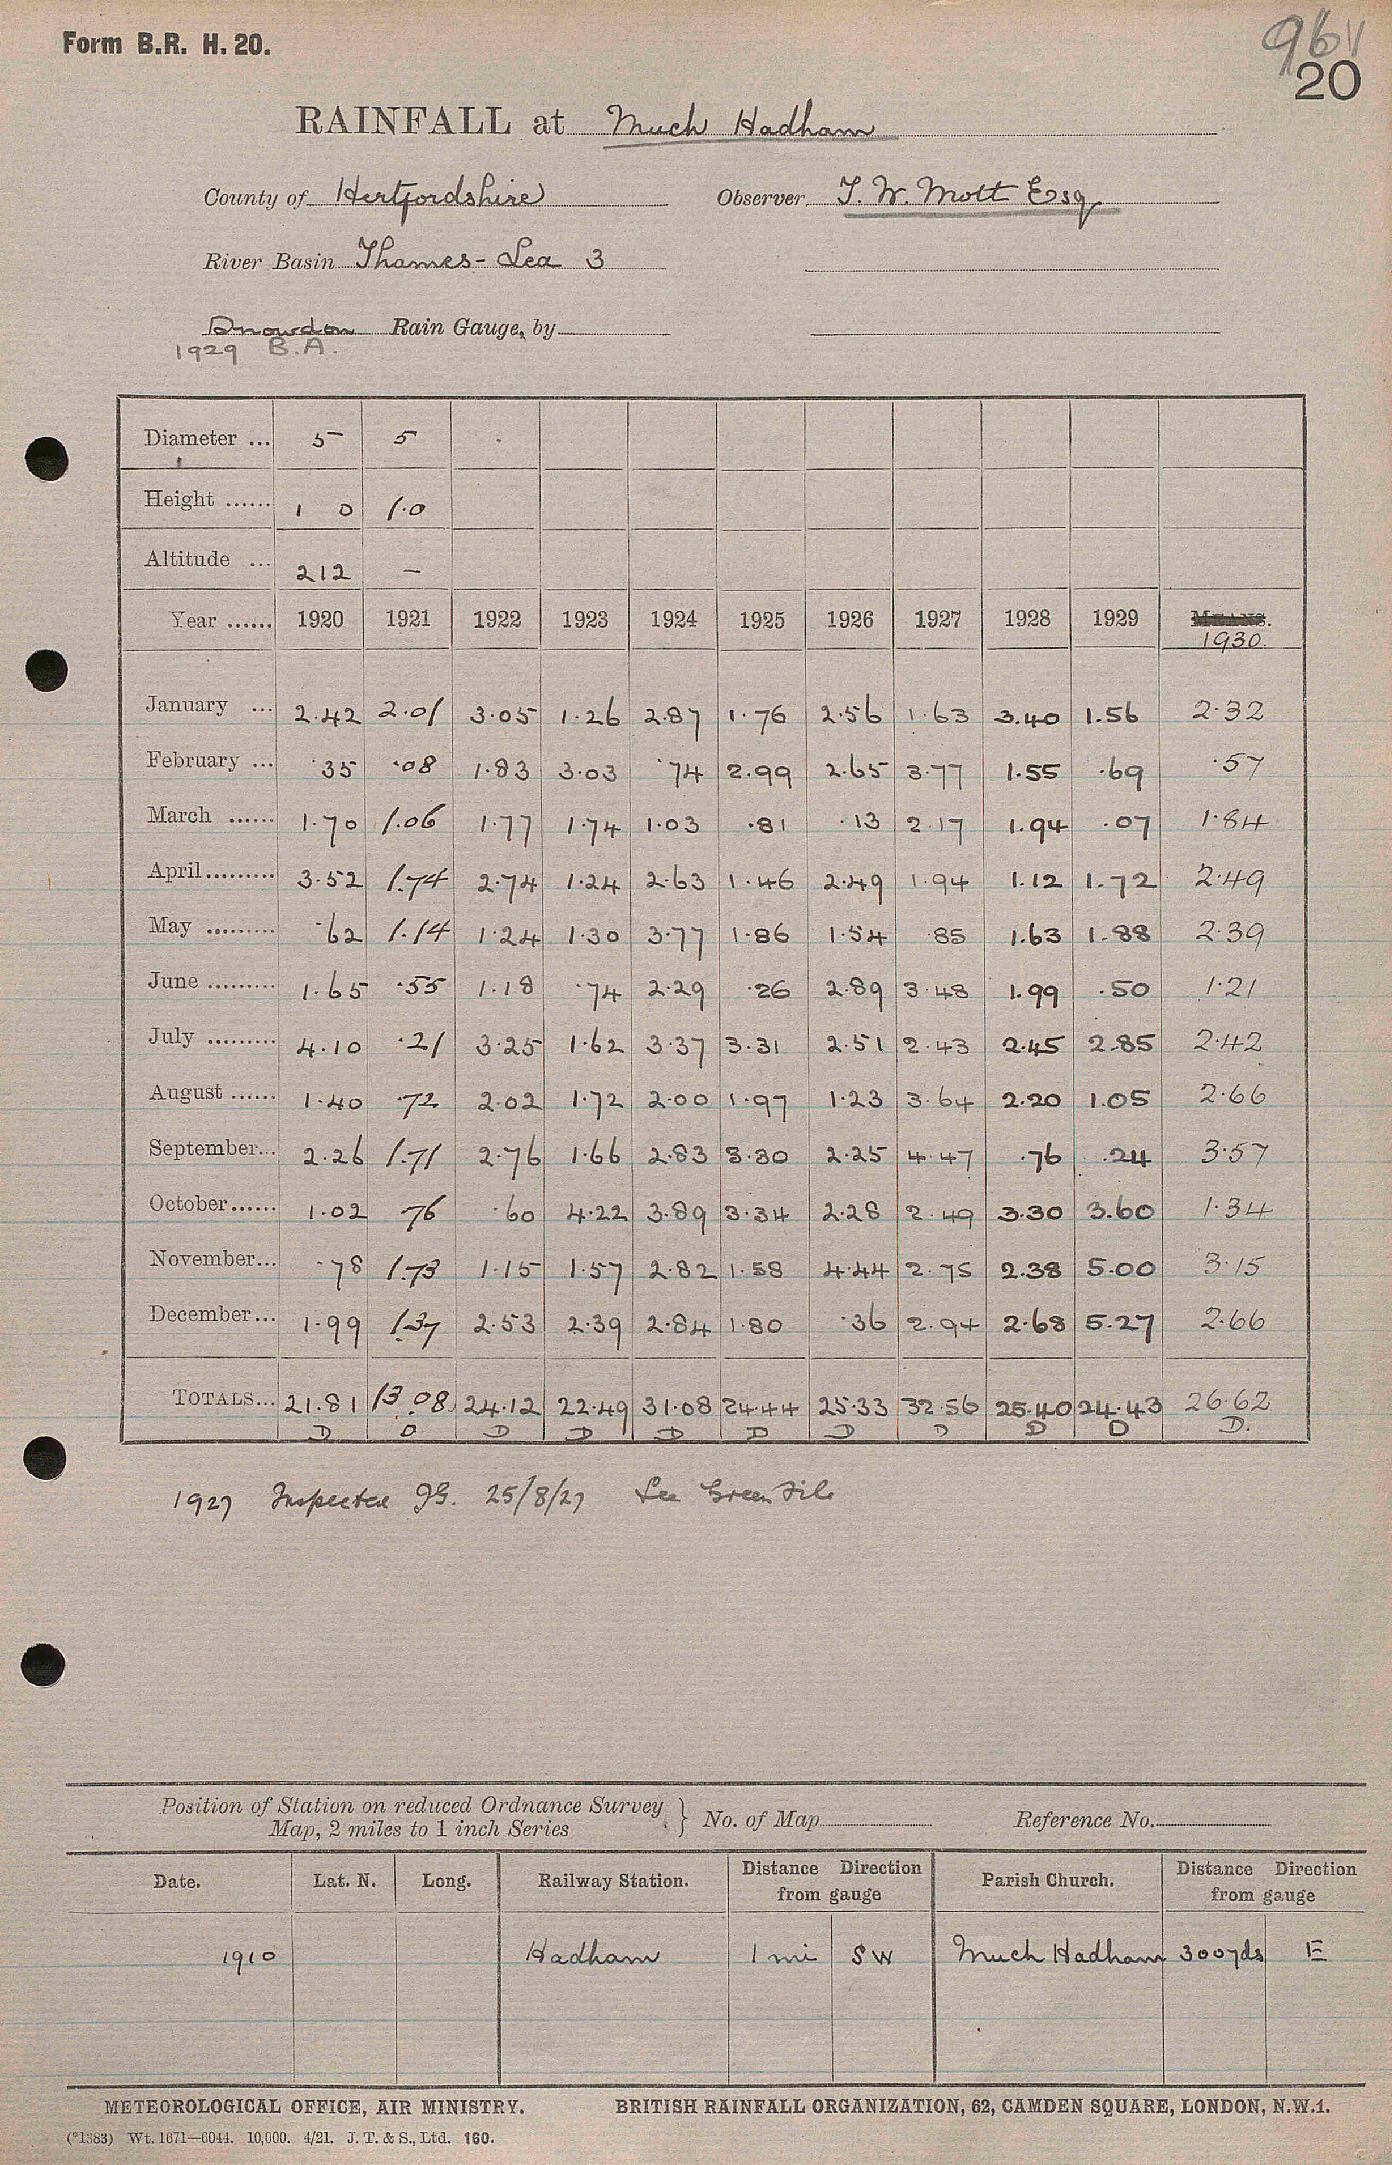 Form B.R. H. 20.
96
20
RAINFALL at Much Hadham
County of Hertfordshire Observer T. W. Mott Esq
River Basin Thames - Lea 3
Snowdon Rain Gauge, by
1929 B.A.
Diameter ... 5 5
Height ...... 1 0 1.0
Altitude ... 212 —
Year ...... 1920 1921 1922 1923 1924 1925 1926 1927 1928 1929 MEANS.
1930.
January ... 2.42 2.01 3.05 1.26 2.87 1.76 2.56 1.63 3.40 1.56 2.32
February ... .35 .08 1.83 3.03 .74 2.99 2.65 3.77 1.55 .69 .57
March ...... 1.70 1.06 1.77 1.74 1.03 .81 .13 2.17 1.94 .07 1.84
April ......... 3.52 1.74 2.74 1.24 2.63 1.46 2.49 1.94 1.12 1.72 2.49
May ......... .62 1.14 1.24 1.30 3.77 1.86 1.54 .85 1.63 1.88 2.39
June ......... 1.65 .55 1.18 .74 2.29 .26 2.89 3.48 1.99 .50 1.21
July ......... 4.10 .21 3.25 1.62 3.37 3.31 2.51 2.43 2.45 2.85 2.42
August ...... 1.40 .72 2.02 1.72 2.00 1.97 1.23 3.64 2.20 1.05 2.66
September... 2.26 1.71 2.76 1.66 2.83 3.30 2.25 4.47 .76 .24 3.57
October ...... 1.02 .76 .60 4.22 3.89 3.34 2.28 2.49 3.30 3.60 1.34
November... .78 1.73 1.15 1.57 2.82 1.58 4.44 2.75 2.38 5.00 3.15
December ... 1.99 1.37 2.53 2.39 2.84 1.80 .36 2.94 2.68 5.27 2.66
TOTALS... 21.81 13.08 24.12 22.49 31.08 24.44 25.33 32.56 25.40 24.43 26.62
D D D D D D D D D D D.
1927 Inspected JG. 25/8/27 See Green File
Position of Station on reduced Ordnance Survey
Map, 2 miles to 1 inch Series } No. of Map Reference No.
Date. Lat. N. Long. Railway Station. Distance Direction from gauge Parish Church. Distance Direction from gauge
1910 Hadham 1 mi SW Much Hadham 300yds E
METEOROLOGICAL OFFICE, AIR MINISTRY. BRITISH RAINFALL ORGANIZATION, 62, CAMDEN SQUARE, LONDON, N.W.1.
(*1383) Wt. 1671—6044. 10,000. 4/21. J. T. & S., Ltd. 160.